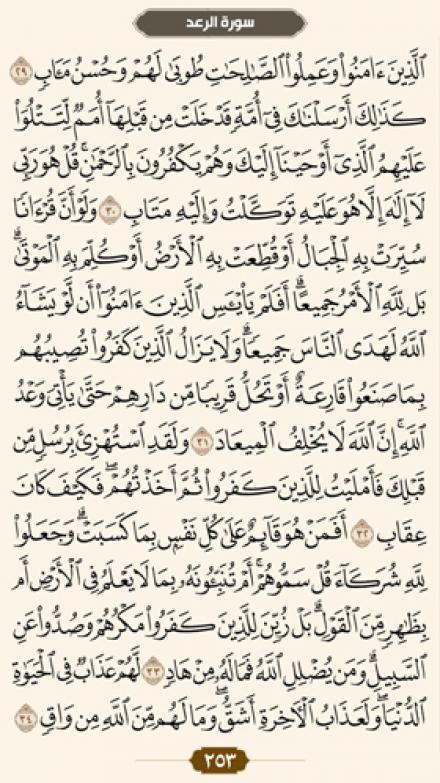 سورة الرعد
ٱلَّذِينَ ءَامَنُوا۟ وَعَمِلُوا۟ ٱلصَّـٰلِحَـٰتِ طُوبَىٰ لَهُمْ وَحُسْنُ مَـَٔابٍ ٢٩
كَذَٰلِكَ أَرْسَلْنَـٰكَ فِىٓ أُمَّةٍ قَدْ خَلَتْ مِن قَبْلِهَآ أُمَمٌ لِّتَتْلُوَا۟
عَلَيْهِمُ ٱلَّذِىٓ أَوْحَيْنَآ إِلَيْكَ وَهُمْ يَكْفُرُونَ بِٱلرَّحْمَـٰنِ ۚ قُلْ هُوَ رَبِّى
لَآ إِلَـٰهَ إِلَّا هُوَ عَلَيْهِ تَوَكَّلْتُ وَإِلَيْهِ مَتَابِ ٣٠ وَلَوْ أَنَّ قُرْءَانًا
سُيِّرَتْ بِهِ ٱلْجِبَالُ أَوْ قُطِّعَتْ بِهِ ٱلْأَرْضُ أَوْ كُلِّمَ بِهِ ٱلْمَوْتَىٰ ۗ
بَل لِّلَّهِ ٱلْأَمْرُ جَمِيعًا ۗ أَفَلَمْ يَا۟يْـَٔسِ ٱلَّذِينَ ءَامَنُوٓا۟ أَن لَّوْ يَشَآءُ
ٱللَّهُ لَهَدَى ٱلنَّاسَ جَمِيعًا ۗ وَلَا يَزَالُ ٱلَّذِينَ كَفَرُوا۟ تُصِيبُهُم
بِمَا صَنَعُوا۟ قَارِعَةٌ أَوْ تَحُلُّ قَرِيبًا مِّن دَارِهِمْ حَتَّىٰ يَأْتِىَ وَعْدُ
ٱللَّهِ ۚ إِنَّ ٱللَّهَ لَا يُخْلِفُ ٱلْمِيعَادَ ٣١ وَلَقَدِ ٱسْتُهْزِئَ بِرُسُلٍ مِّن
قَبْلِكَ فَأَمْلَيْتُ لِلَّذِينَ كَفَرُوا۟ ثُمَّ أَخَذْتُهُمْ ۖ فَكَيْفَ كَانَ
عِقَابِ ٣٢ أَفَمَنْ هُوَ قَآئِمٌ عَلَىٰ كُلِّ نَفْسٍۭ بِمَا كَسَبَتْ ۗ وَجَعَلُوا۟
لِلَّهِ شُرَكَآءَ قُلْ سَمُّوهُمْ ۚ أَمْ تُنَبِّـُٔونَهُۥ بِمَا لَا يَعْلَمُ فِى ٱلْأَرْضِ أَم
بِظَـٰهِرٍ مِّنَ ٱلْقَوْلِ ۗ بَلْ زُيِّنَ لِلَّذِينَ كَفَرُوا۟ مَكْرُهُمْ وَصُدُّوا۟ عَنِ
ٱلسَّبِيلِ ۗ وَمَن يُضْلِلِ ٱللَّهُ فَمَا لَهُۥ مِنْ هَادٍ ٣٣ لَّهُمْ عَذَابٌ فِى ٱلْحَيَوٰةِ
ٱلدُّنْيَا ۖ وَلَعَذَابُ ٱلْـَٔاخِرَةِ أَشَقُّ ۖ وَمَا لَهُم مِّنَ ٱللَّهِ مِن وَاقٍ ٣٤
٢٥٣